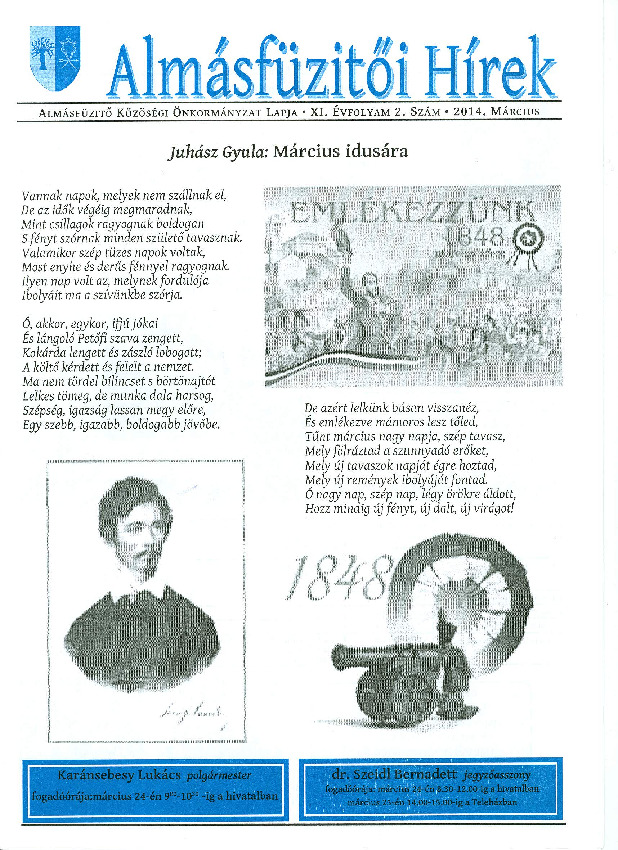 Almásfüzitői Hírek
ALMÁSFÜZITŐ KÖZSÉGI ÖNKORMÁNYZAT LAPJA • XI. ÉVFOLYAM 2. SZÁM • 2014. MÁRCIUS
Juhász Gyula: Március idusára
Vannak napok, melyek nem szállnak el,
De az idők végéig megmaradnak,
Mint csillagok ragyognak boldogan
S fényt szórnak minden születő tavasznak.
Valamikor szép tüzes napok voltak,
Most enyhe és derűs fénnyel ragyognak.
Ilyen nap volt az, melynek fordulója
Ibolyáit ma a szívünkbe szórja.
Ó, akkor, egykor, ifjú Jókai
És lángoló Petőfi szava zengett,
Kokárda lengett és zászló lobogott;
A költő kérdett és felelt a nemzet.
Ma nem tördel bilincset s börtönajtót
Lelkes tömeg, de munka dala harsog,
Szépség, igazság lassan megy előre,
Egy szebb, igazabb, boldogabb jövőbe.
EMLÉKEZZÜNK
1848
De azért lelkünk búsan visszanéz,
És emlékezve mámoros lesz tőled,
Tűnt március nagy napja, szép tavasz,
Mely fölráztad a szunnyadó erőket,
Mely új tavaszok napját égre hoztad,
Mely új remények ibolyáját fontad.
Ó nagy nap, szép nap, légy örökre áldott,
Hozz mindig új fényt, új dalt, új virágot!
1848
Karánsebesy Lukács polgármester
fogadóórája:március 24-én 9⁰⁰-10⁰⁰ -ig a hivatalban
dr. Szeidl Bernadett jegyzőasszony
fogadóórája: március 24-én 8.30-12.00-ig a hivatalban
március 25-én 14.00-15.00-ig a Teleházban